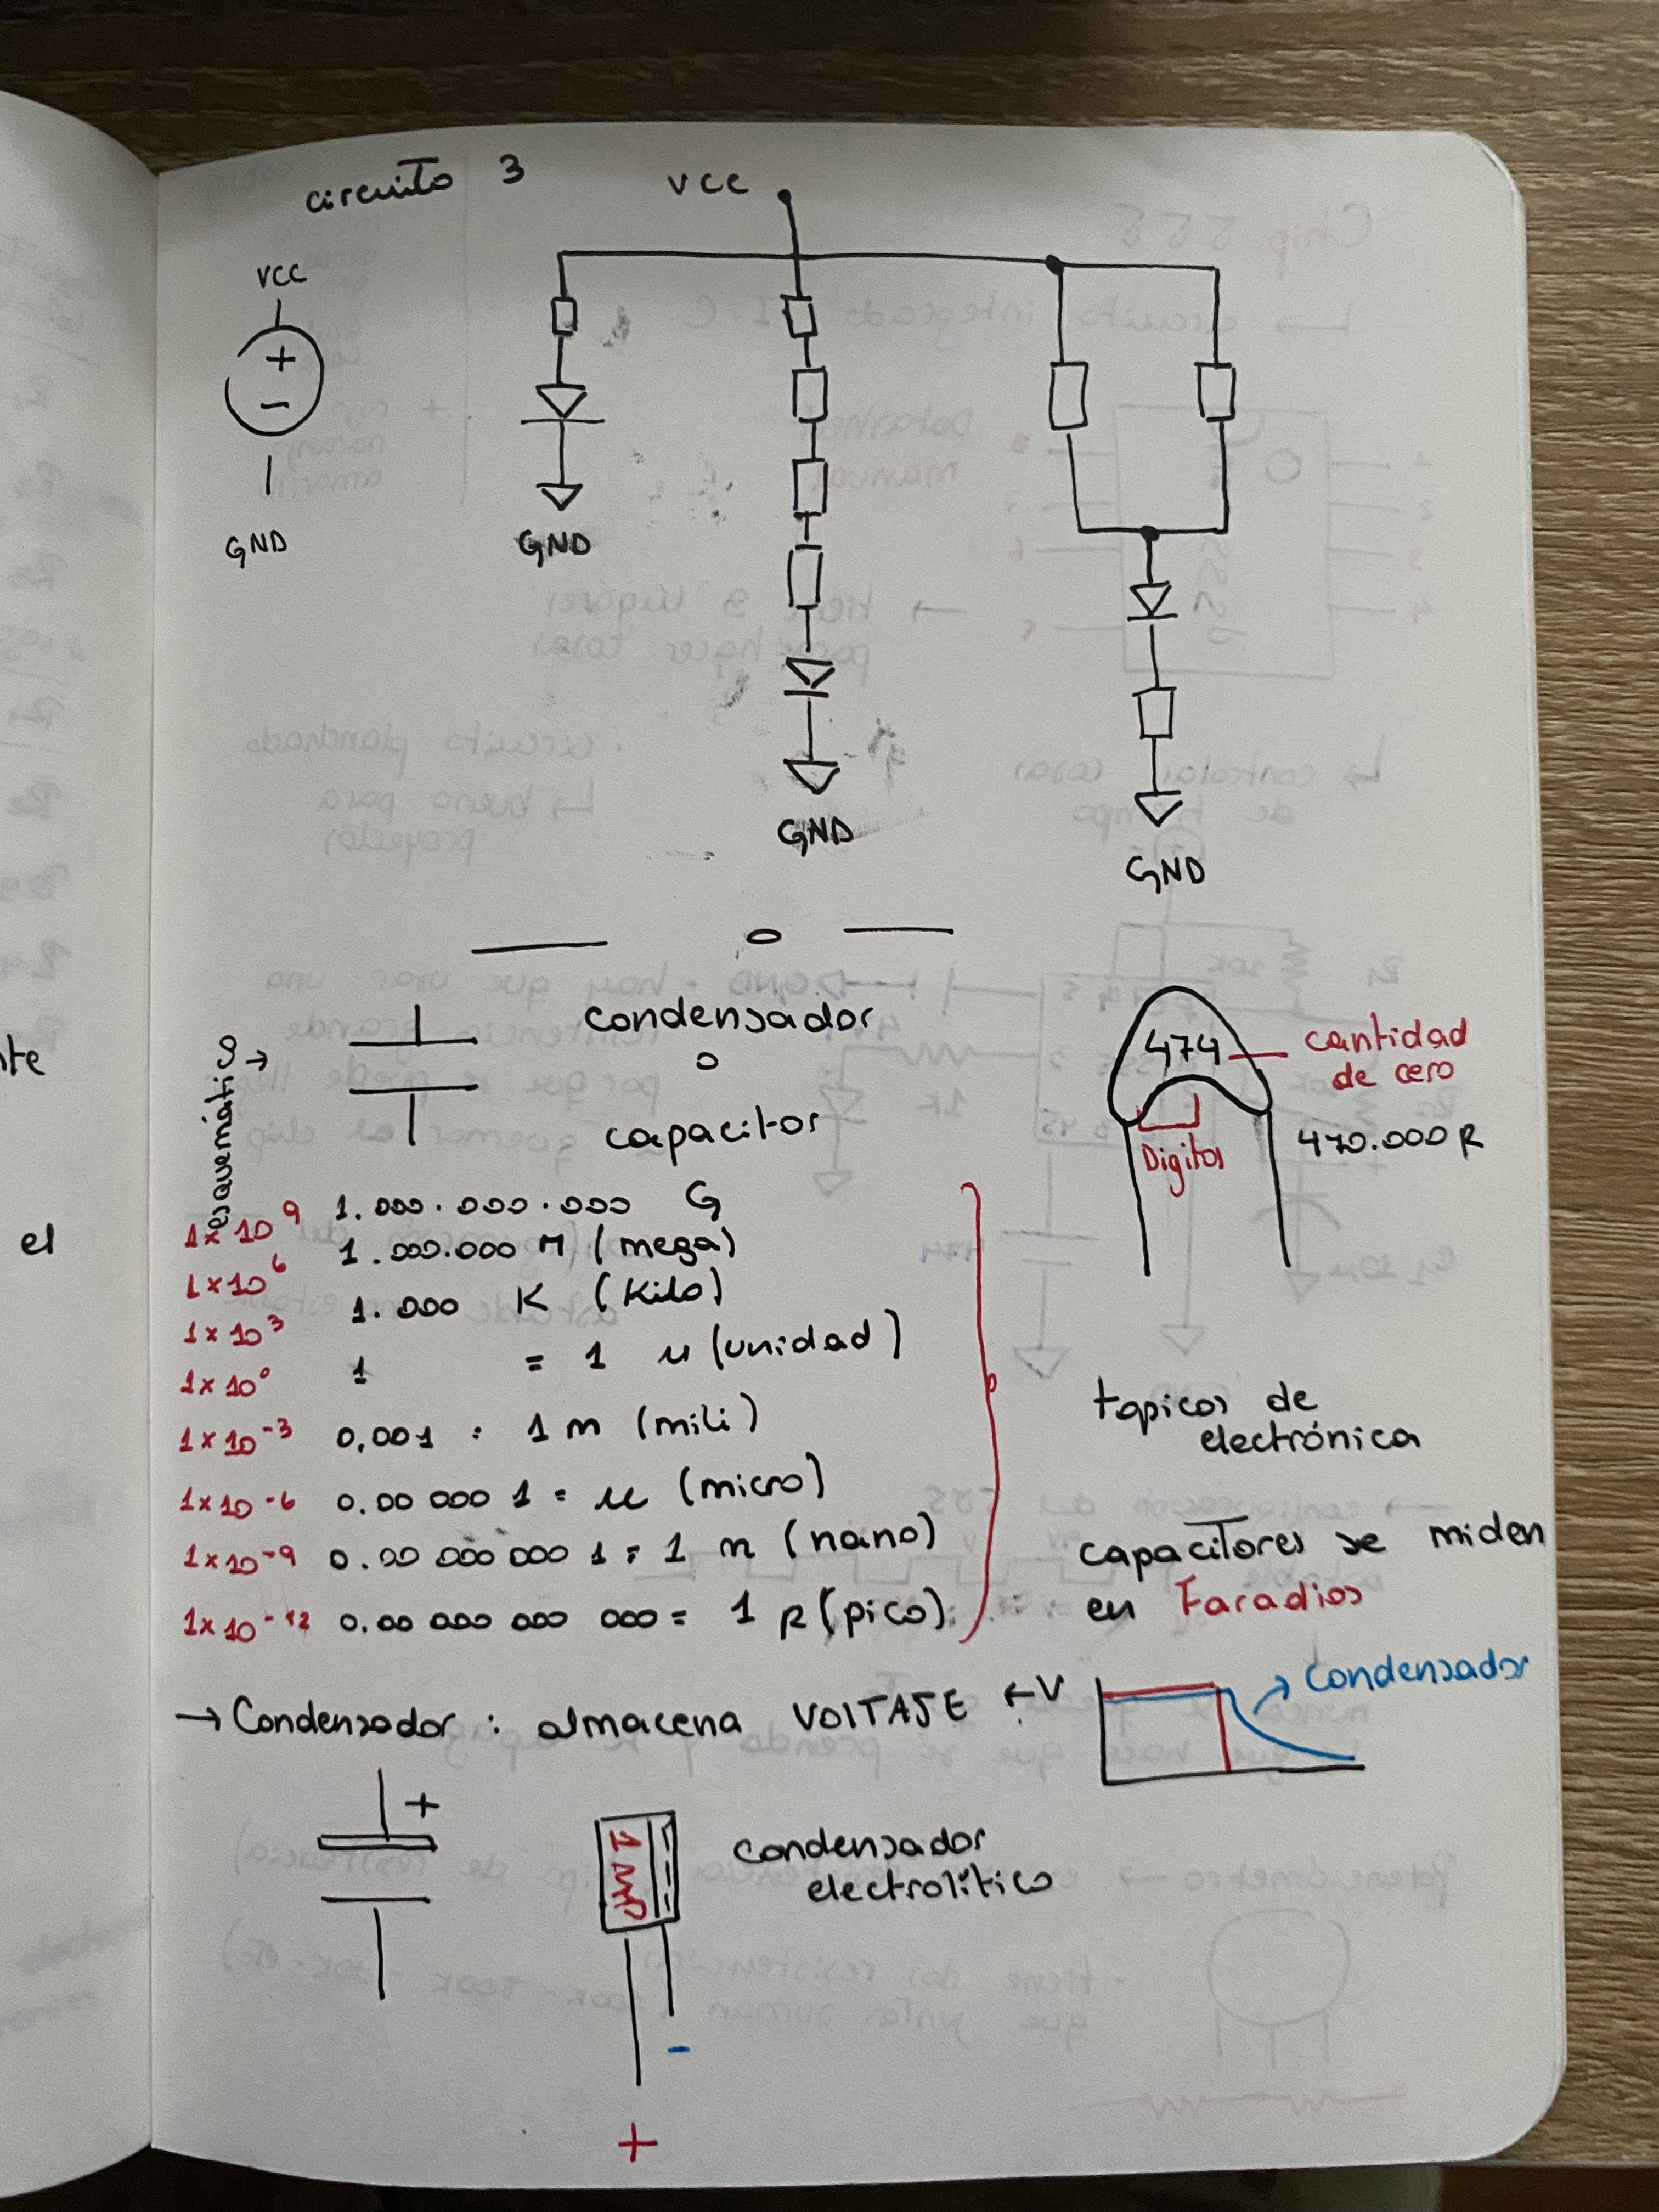 circuito 3
VCC
VCC
+
-
GND
GND
GND
GND
esquemático →
condensador
o
capacitor
474
cantidad
de cero
Digitos
470.000 p
1x10⁹ 1.000.000.000 G
1x10⁶ 1.000.000 M (mega)
1x10³ 1.000 K (Kilo)
1x10⁰ 1 = 1 u (unidad)
1x10⁻³ 0,001 = 1 m (mili)
1x10⁻⁶ 0.00 000 1 = u (micro)
1x10⁻⁹ 0.00 000 000 1 = 1 n (nano)
1x10⁻¹² 0.00 000 000 000 = 1 p (pico)
topicos de
electrónica
capacitores se miden
en Faradios
→ Condensador : almacena VOLTAJE ← V
→ Condensador
+
1 mF
condensador
electrolítico
-
+
te
el